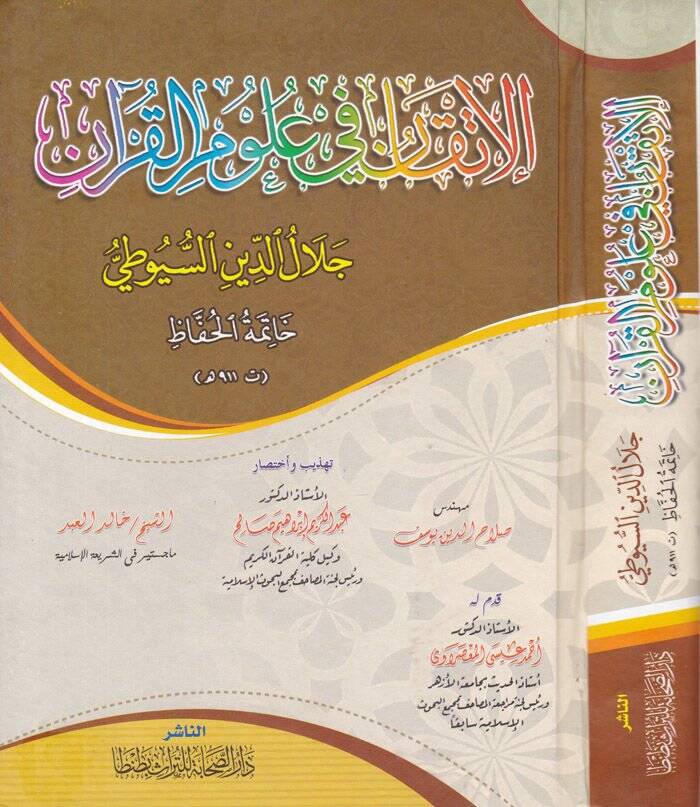 الإتقان في علوم القرآن
جَلَالُ الدِّينِ السُّيُوطِيُّ
خَاتِمَةُ الحُفَّاظِ
(ت ٩١١ هـ)
تهذيب وأختصار
مهندس
صلاح الدين يوسف
الأستاذ الدكتور
عبد الكريم إبراهيم صالح
وكيل كلية القرآن الكريم
ورئيس لجنة المصاحف بمجمع البحوث الإسلامية
الشيخ / خالد العبد
ماجستير في الشريعة الإسلامية
قدم له
الأستاذ الدكتور
أحمد عيسى المعصراوي
أستاذ الحديث بجامعة الأزهر
ورئيس لجنة مراجعة المصاحف بمجمع البحوث
الإسلامية سابقاً
الناشر
دار الصحابة للتراث بطنطا
الإتقان في علوم القرآن
جلال الدين السيوطي
خاتمة الحفاظ (ت ٩١١ هـ)
الناشر
دار الصحابة للتراث بطنطا